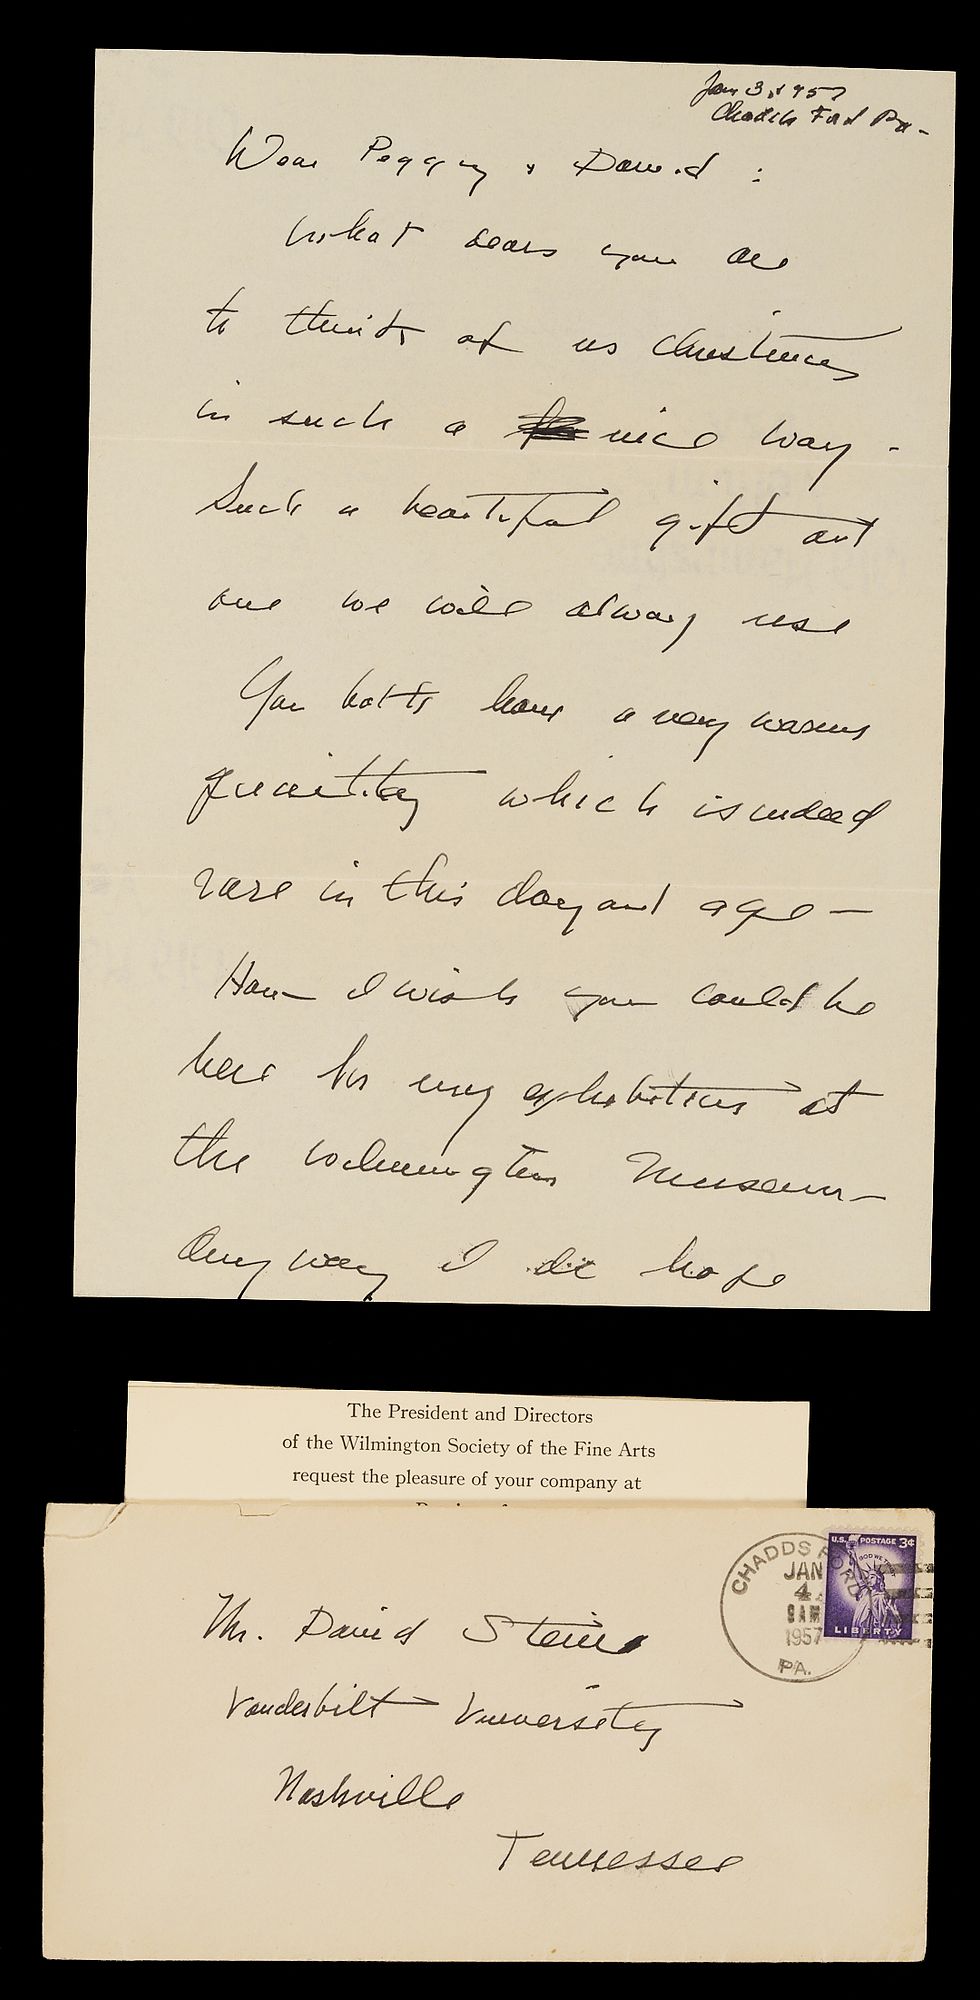 Jan 3, 1957
Chadds Ford Pa-
Dear Peggy & David :
What dears you are
to think of us Christmas
in such a nice way -
Such a beautiful gift and
one we will always use
You both have a very warm
quality which is indeed
rare in this day and age —
How I wish you could be
here for my exhibition at
the Wilmington Museum —
Any way I do hope
The President and Directors
of the Wilmington Society of the Fine Arts
request the pleasure of your company at
CHADDS FORD
JAN
4
9 AM
1957
PA.
U.S. POSTAGE 3¢
IN GOD WE TRUST
LIBERTY
Mr. David Stein
Vanderbilt University
Nashville
Tennessee